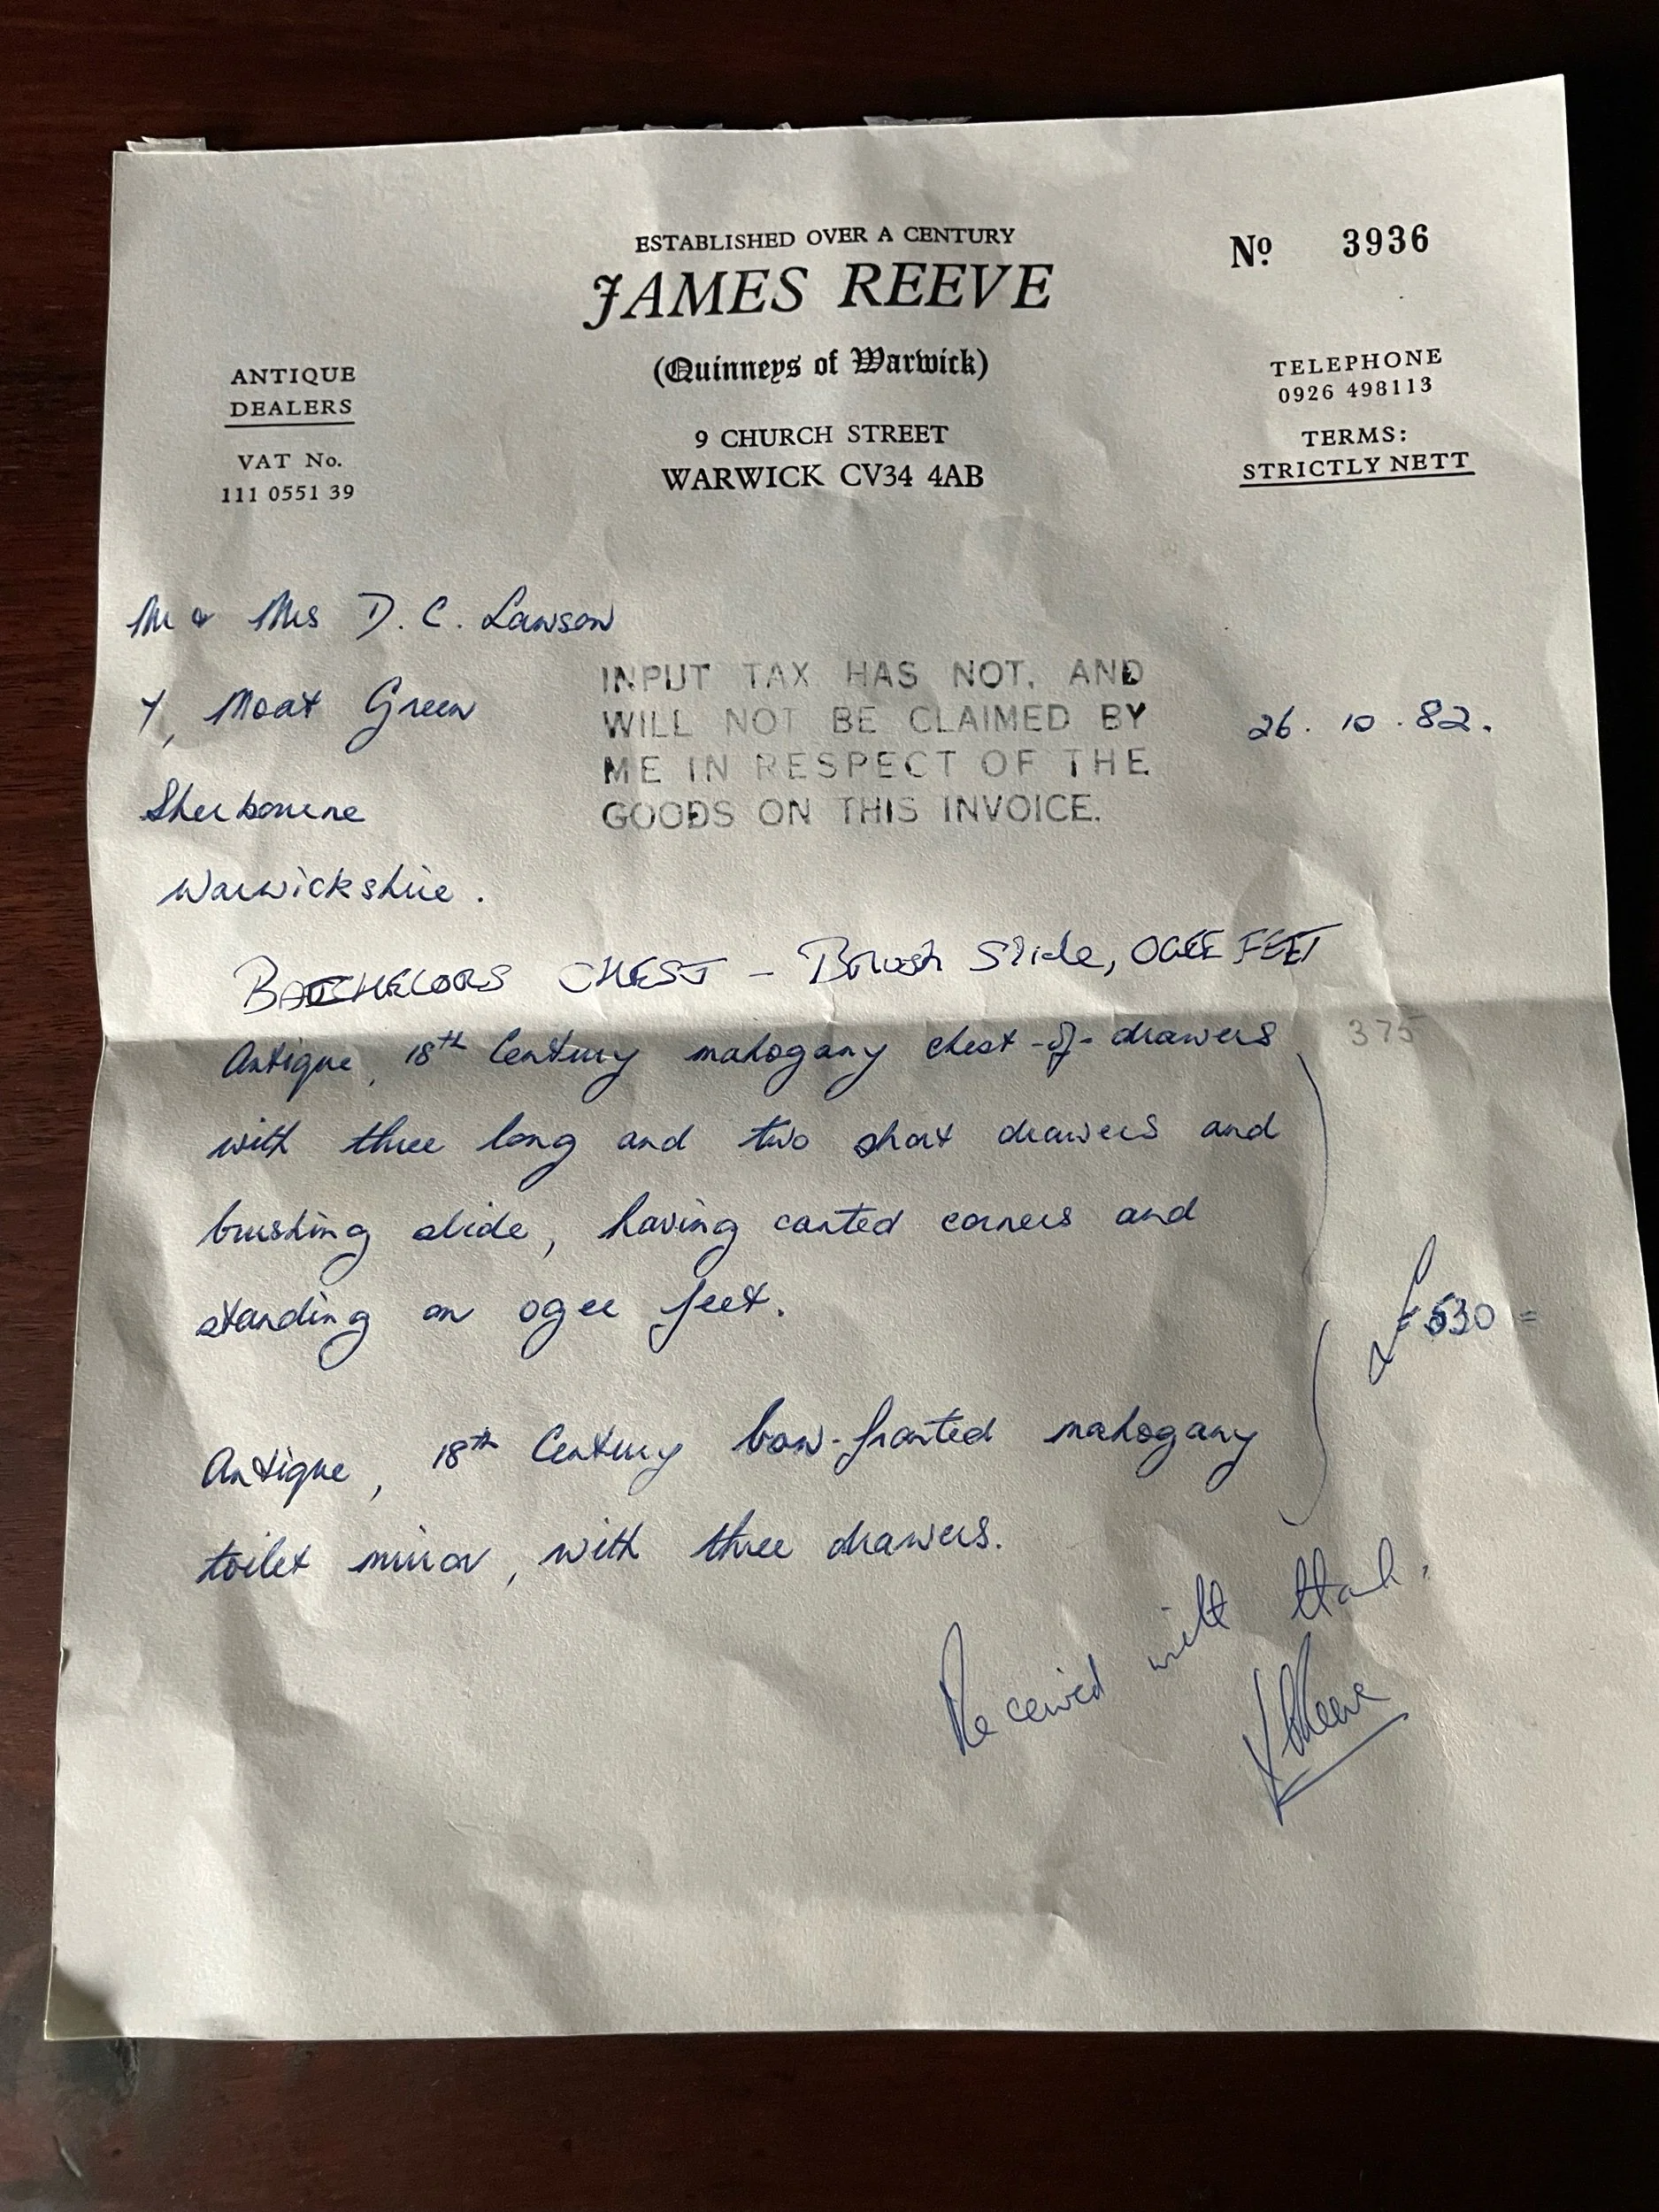 ESTABLISHED OVER A CENTURY
Nº 3936
JAMES REEVE
(Quinneys of Warwick)
ANTIQUE
DEALERS
VAT No.
111 0551 39
9 CHURCH STREET
WARWICK CV34 4AB
TELEPHONE
0926 498113
TERMS:
STRICTLY NETT
Mr & Mrs D. C. Lawson
Moat Green
Sherbourne
Warwickshire.
INPUT TAX HAS NOT, AND
WILL NOT BE CLAIMED BY
ME IN RESPECT OF THE
GOODS ON THIS INVOICE.
26. 10. 82.
BACHELORS CHEST - Brush Slide, OGEE FEET
Antique, 18th Century mahogany chest-of-drawers
375
with three long and two short drawers and
brushing slide, having canted corners and
standing on ogee feet.
£530 =
Antique, 18th Century bow-fronted mahogany
toilet mirror, with three drawers.
Received with
Reeve